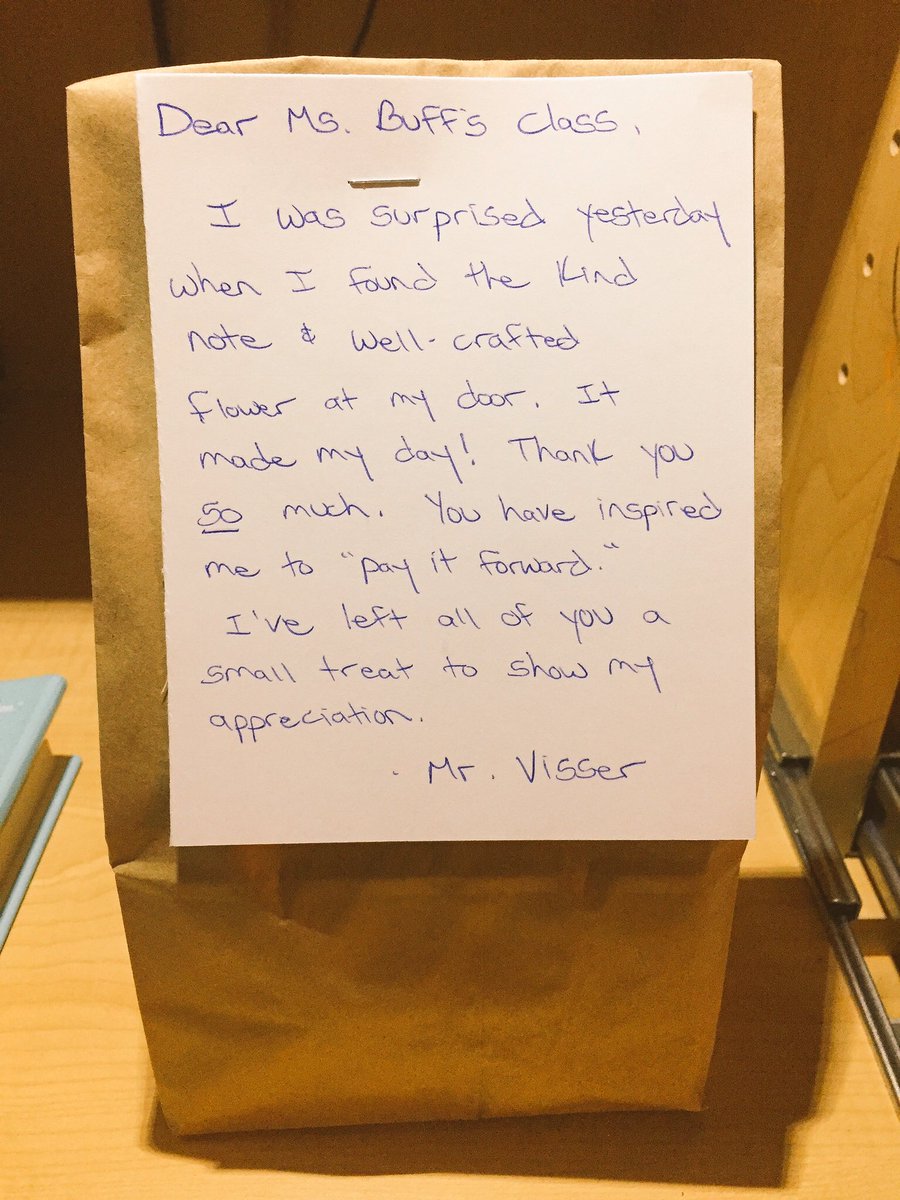 Dear Ms. Buff's class,
I was surprised yesterday
when I found the kind
note & well-crafted
flower at my door. It
made my day! Thank you
so much. You have inspired
me to "pay it forward."
I've left all of you a
small treat to show my
appreciation.
- Mr. Visser